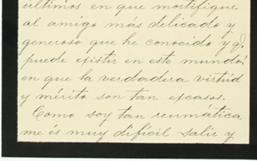 últimos en que mortifique
al amigo más delicado y
generoso que he conocido y q.
puede existir en este mundo
en que la verdadera virtud
y mérito son tan escasos.
Como soy tan reumática
me és muy difícil salir y